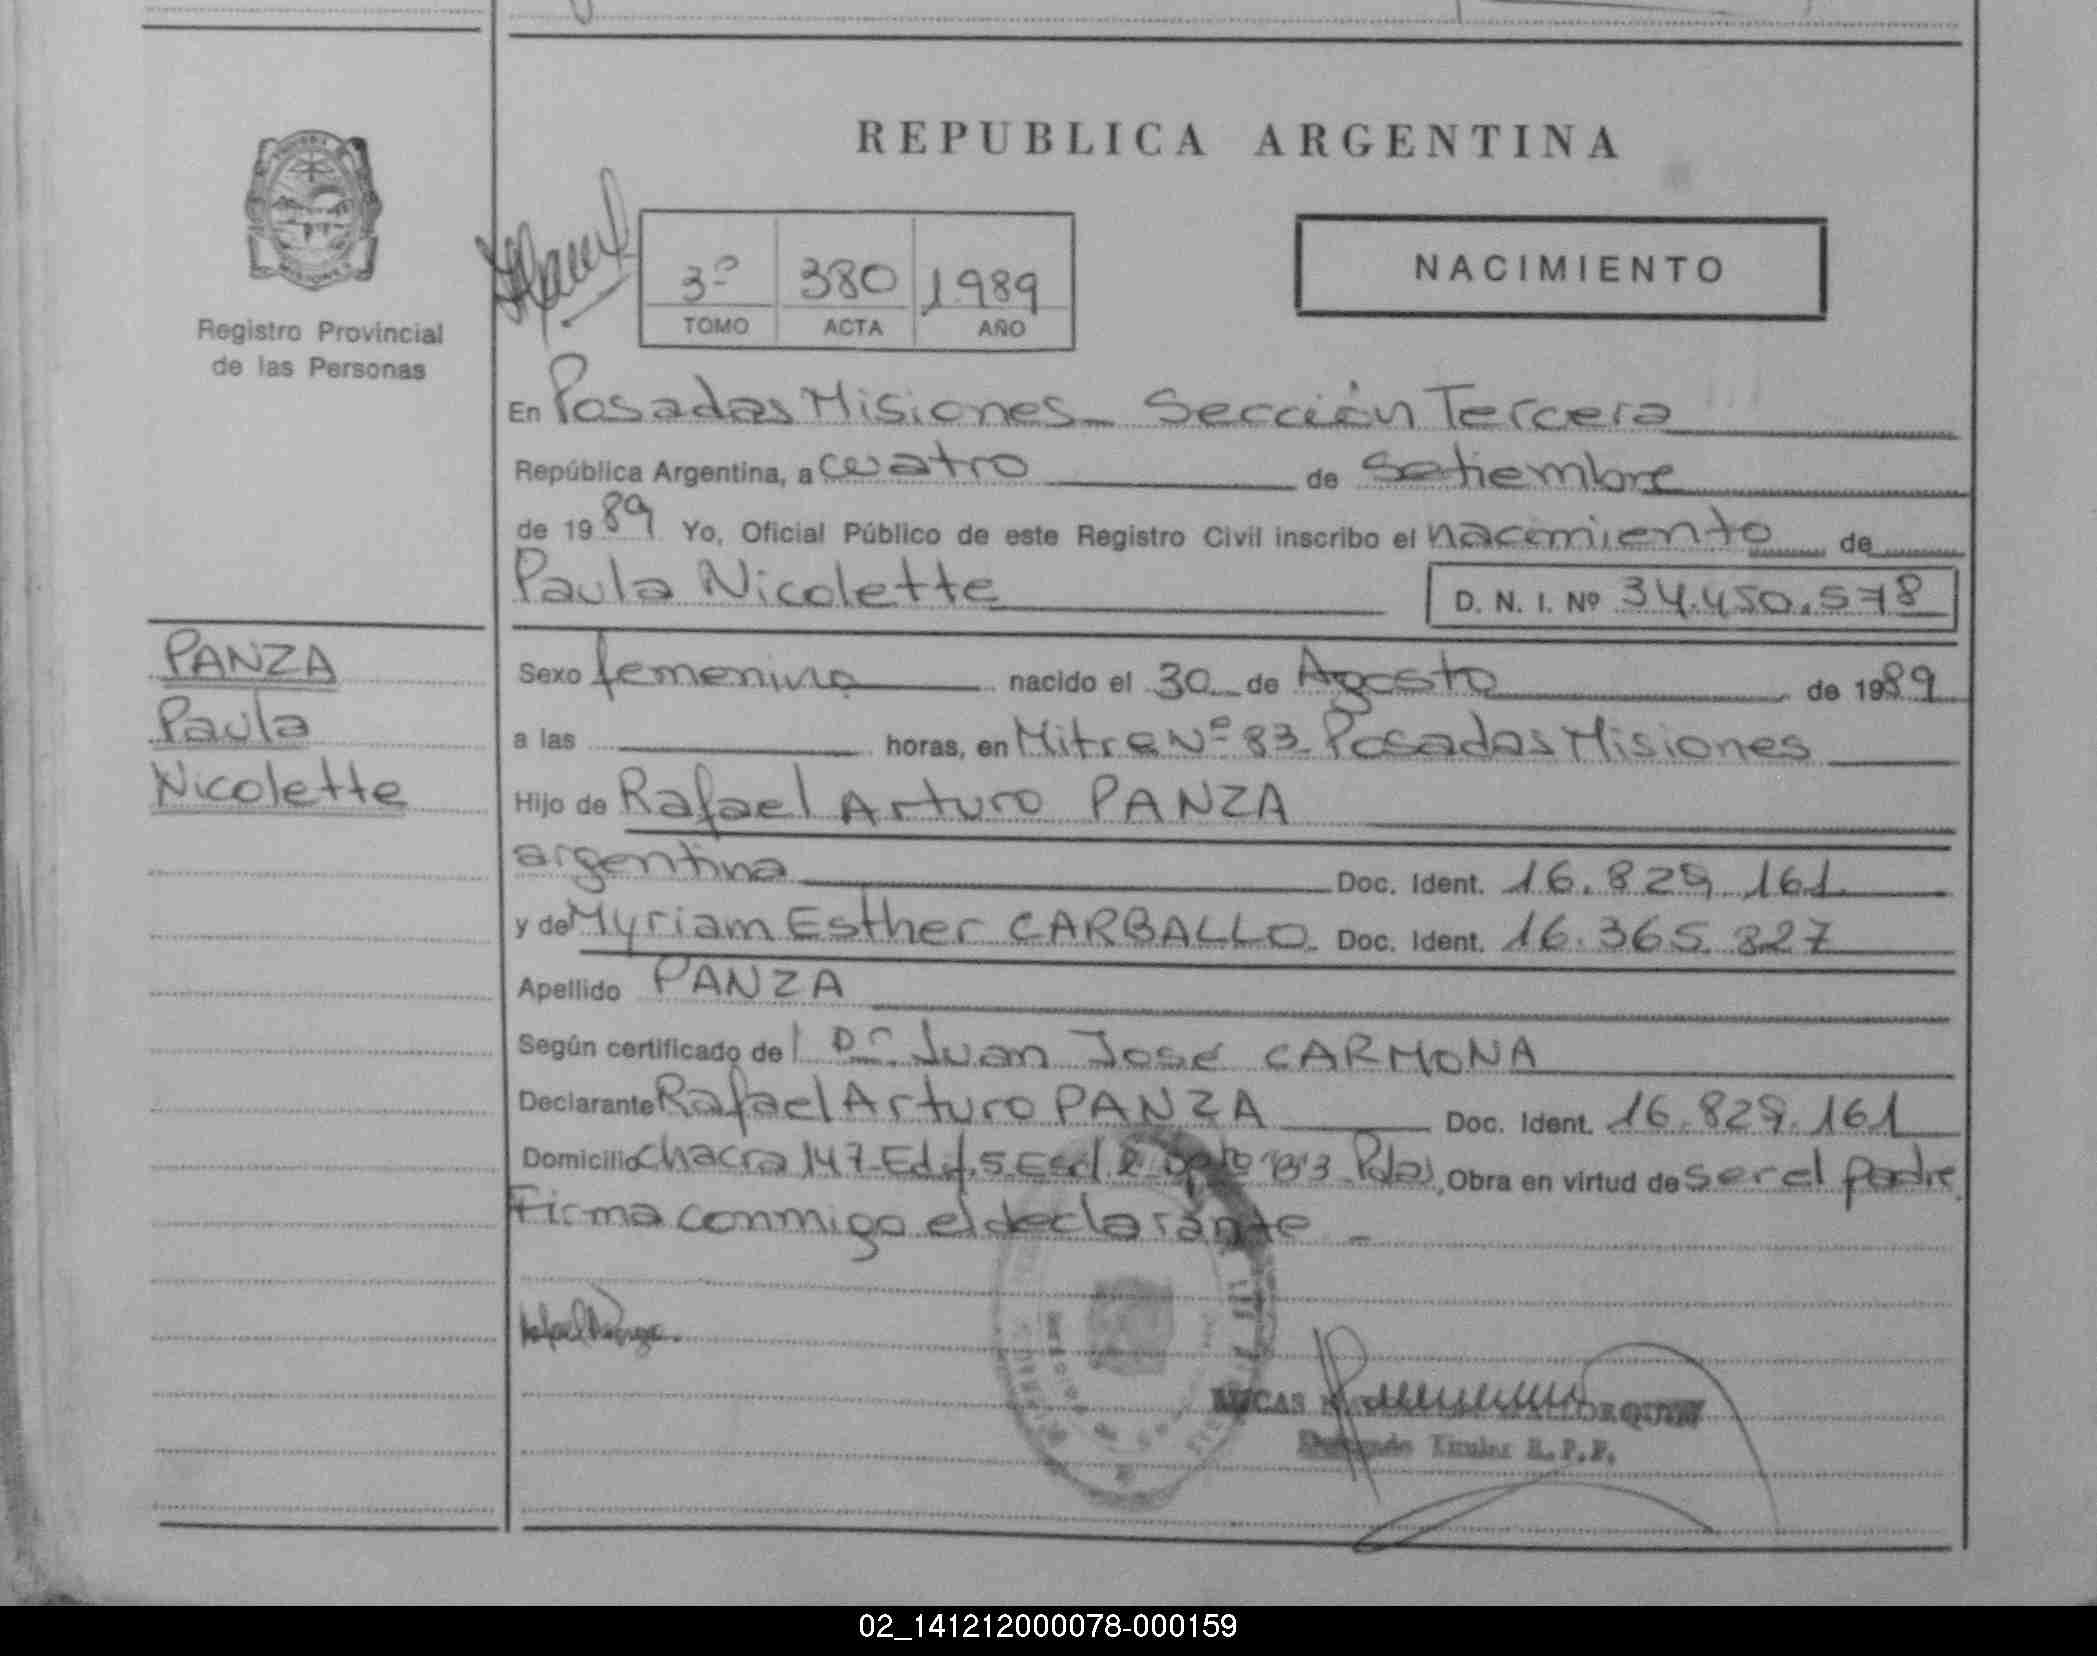 REPUBLICA ARGENTINA
NACIMIENTO
3º 380 1989
TOMO ACTA AÑO
Registro Provincial
de las Personas
En Posadas Misiones - Sección Tercera
República Argentina, a cuatro de Setiembre
de 1989 Yo, Oficial Público de este Registro Civil inscribo el nacimiento de
Paula Nicolette D. N. I. Nº 34.450.578
PANZA
Paula
Nicolette
Sexo femenino nacido el 30 de Agosto de 1989
a las horas, en Mitre Nº 83 Posadas Misiones
Hijo de Rafael Arturo PANZA
argentina Doc. Ident. 16.829.161
y de Myriam Esther CARBALLO. Doc. Ident. 16.365.327
Apellido PANZA
Según certificado del Dr. Juan José CARMONA
Declarante Rafael Arturo PANZA Doc. Ident. 16.829.161
Domicilio Chacra 147 Edif. 5 Esc. Dpto Pdas, Obra en virtud de ser el padre.
Firma conmigo el declarante -
LUCAS
Titular R.P.P.
02_141212000078-000159